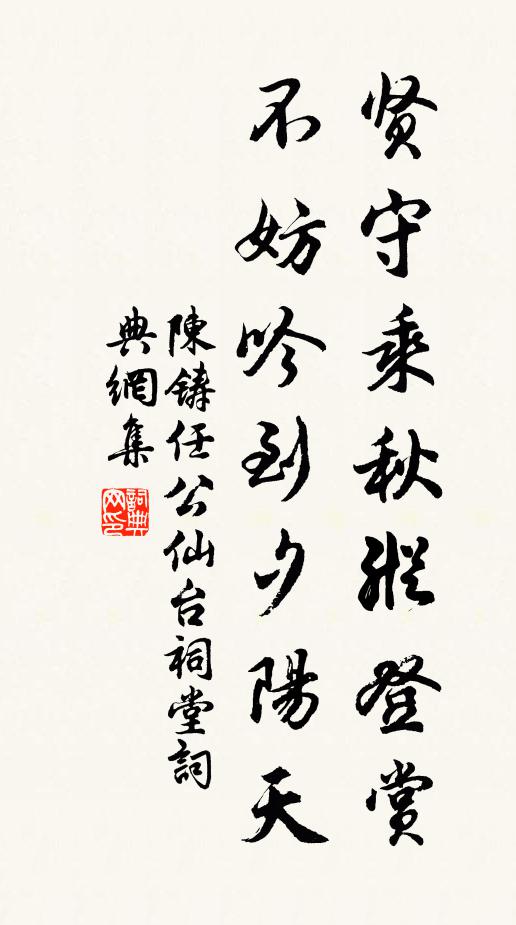 贤守乘秋縱登赏
不妨吟到夕陽天
陳鑄任公仙台祠堂詞
典網集
詞典网印